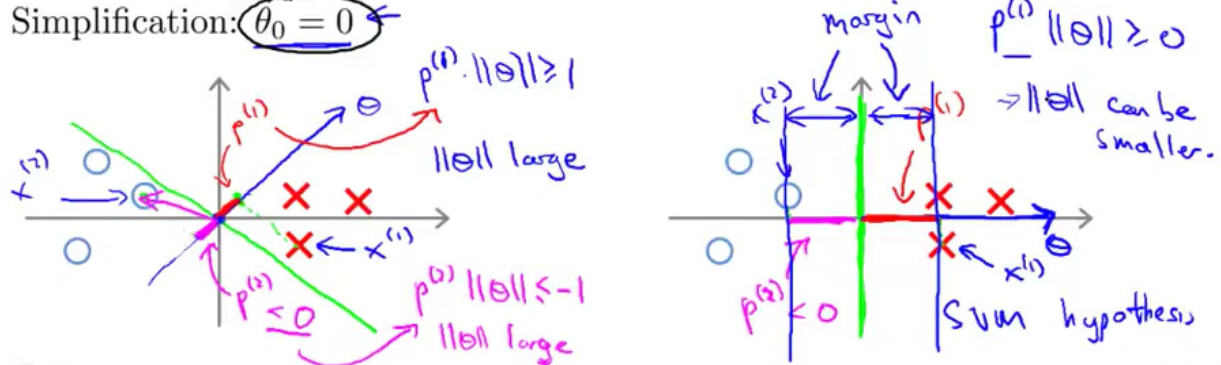 Simplification: θ₀ = 0
p⁽¹⁾ · ||θ|| ≥ 1
θ
p⁽¹⁾
||θ|| large
x⁽²⁾
x⁽¹⁾
p⁽²⁾ < 0
p⁽²⁾ ||θ|| ≤ -1
||θ|| large
margin
p⁽¹⁾ ||θ|| ≥ 0
x⁽²⁾
p⁽¹⁾
→ ||θ|| can be
smaller.
θ
x⁽¹⁾
p⁽²⁾ < 0
SVM hypothesis